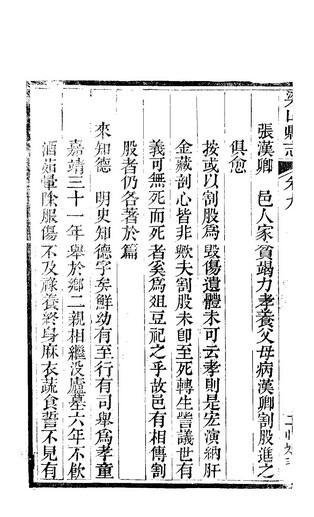 梁山縣志 卷九
張漢卿 邑人家貧竭力孝養父母病漢卿割股進之
俱愈
按或以割股爲毀傷遺體未可云孝則是宏演納肝
金藏剖心皆非歟夫割股未卽至死轉生訾議世有
義可無死而死者奚爲俎豆祀之乎故邑有相傳割
股者仍各著於篇
來知德 明史知德字矣鮮幼有至行有司舉爲孝童
嘉靖三十一年舉於鄉二親相繼没廬墓六年不飲
酒茹葷除服傷不及祿養終身麻衣蔬食誓不見有